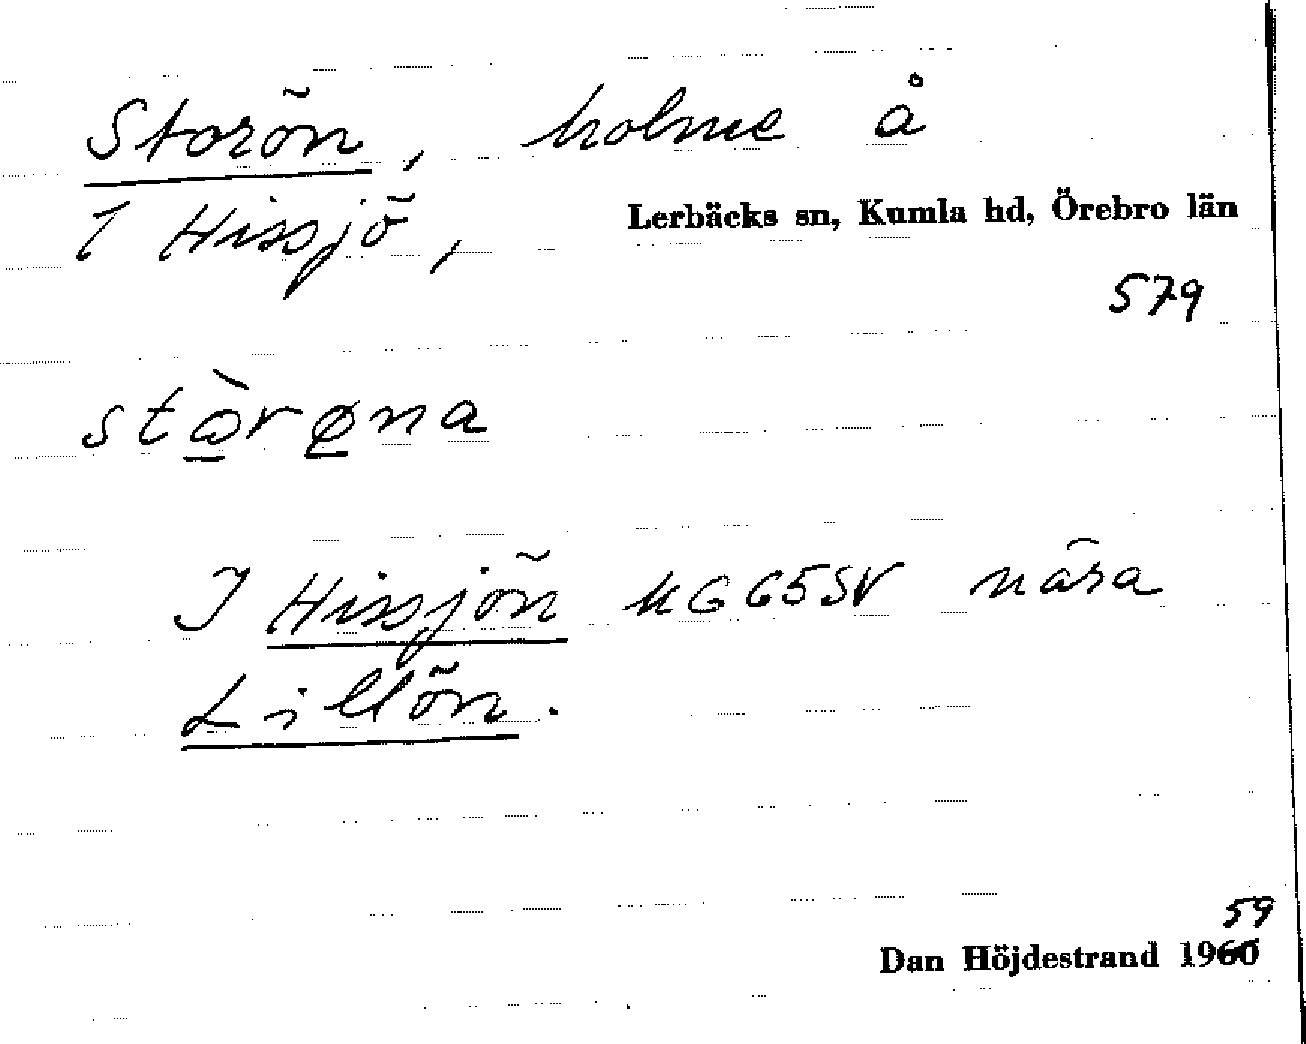 Storön, holme å
1 Hissjö, Lerbäcks sn, Kumla hd, Örebro län
579
stὼrøna
I Hissjön kG65SV nära
Lillön.
59
Dan Höjdestrand 1960